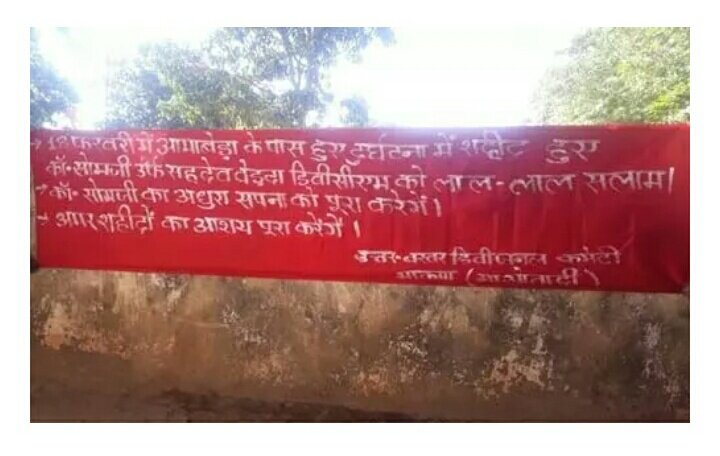 → 18 फरवरी में आमाबेड़ा के पास हुए दुर्घटना में शहीद हुए
कॉ. सोमजी उर्फ सहदेव वेड़दा डिवीसीएम को लाल-लाल सलाम।
→ कॉ. सोमजी का अधुरा सपना को पूरा करेंगे।
→ अमर शहीदों का आशय पूरा करेंगे।
उत्तर-बस्तर डिवीजनल कमेटी
भाकपा (माओवादी)